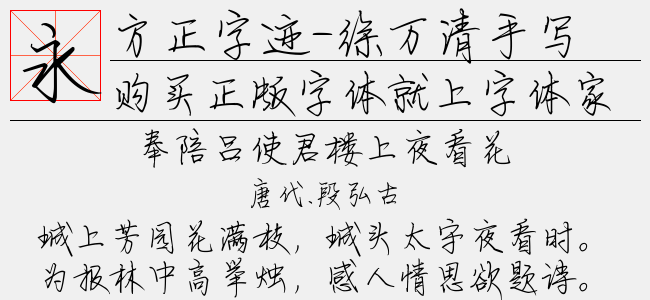 永
方正字迹-徐万清手写
购买正版字体就上字体家
奉陪吕使君楼上夜看花
唐代、段弘古
城上芳园花满枝，城头太守夜看时。
为报林中高举烛，感人情思欲题诗。